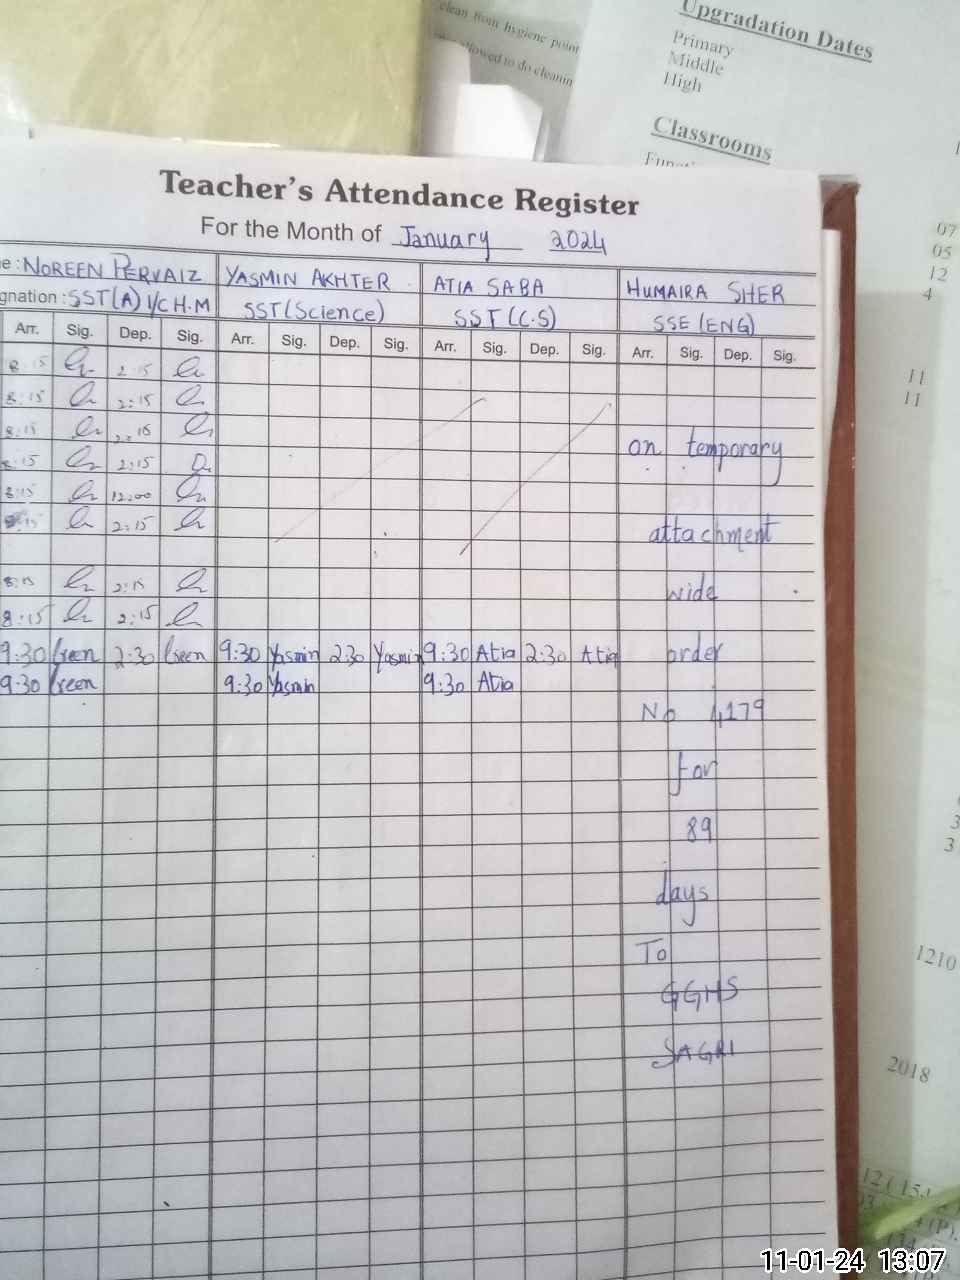 clean from hygiene point
allowed to do cleanin
Upgradation Dates
Primary
Middle
High
Classrooms
Teacher's Attendance Register
For the Month of January 2024
e : NOREEN PERVAIZ YASMIN AKHTER ATIA SABA HUMAIRA SHER
gnation : SST(A) I/C H.M SST(Science) SST(C.S) SSE(ENG)
Arr. Sig. Dep. Sig. Arr. Sig. Dep. Sig. Arr. Sig. Dep. Sig. Arr. Sig. Dep. Sig.
8:15 2:15
8:15 2:15
8:15
8:15 2:15
8:15 12:00
2:15
8:15 2:15
8:15 2:15
9:30 2:30 9:30 Yasmin 2:30 Yasmin 9:30 Atia 2:30 Atia
9:30 9:30 Yasmin 9:30 Atia
on temporary
attachment
wide
order
No 4179
for
89
days
To
GGHS
SAGRI
07
05
12
4
11
11
3
3
1210
2018
11-01-24 13:07